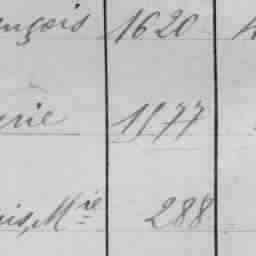 nçois 1620
rie 1577
is, Mie 288